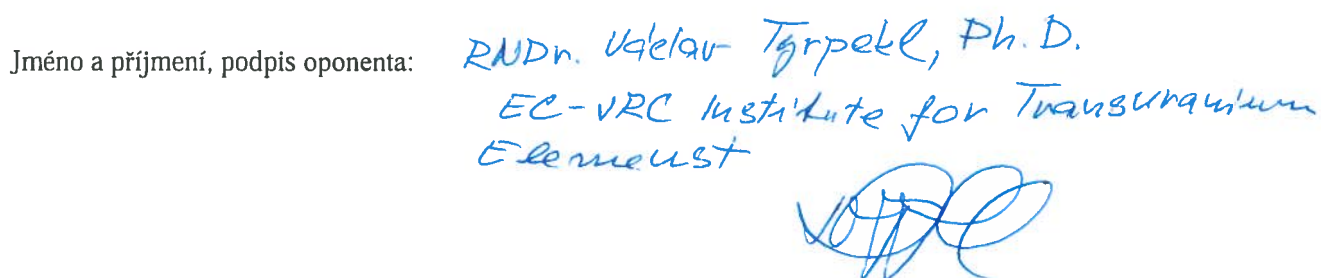 Jméno a příjmení, podpis oponenta: RNDr. Václav Tyrpekl, Ph.D.
EC-JRC Institute for Transuranium
Elemenst